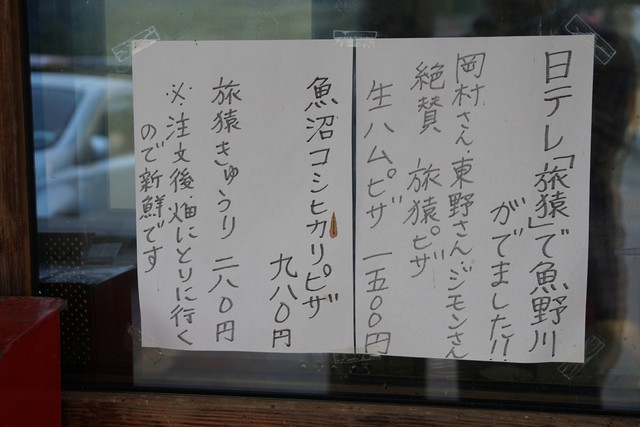 日テレ「旅猿」で魚野川
がでました!!
岡村さん.東野さん.ジモンさん
絶賛 旅猿ピザ
生ハムピザ 一五〇〇円
魚沼コシヒカリピザ
九八〇円
旅猿きゅうり 二八〇円
※注文後畑にとりに行く
ので新鮮です